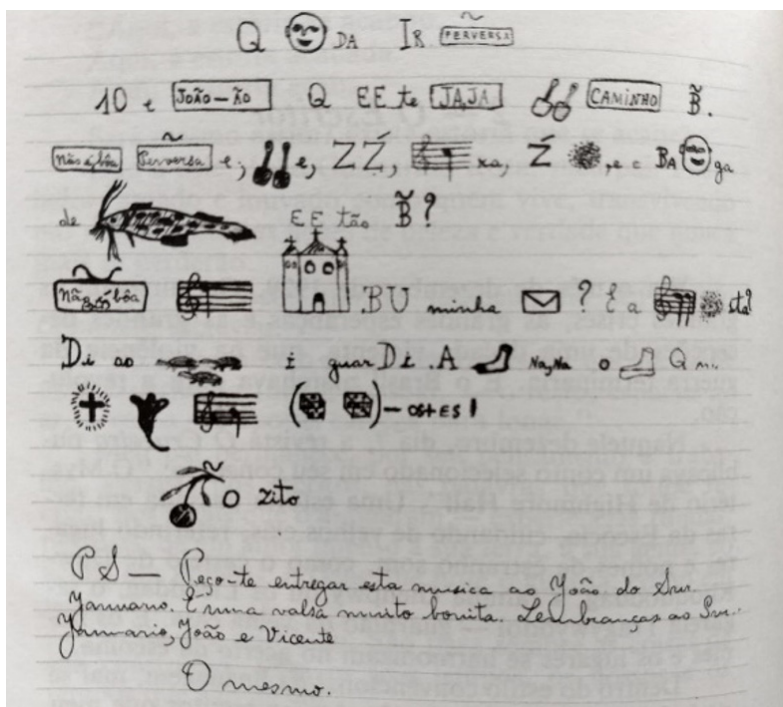 Q DA IR PERVERSA
10 e João–ão Q EE te JAJA CAMINHO B̃.
Não é bôa Perversa e, e, Z Ź, xa, Z , e e BA ga
de EE tão B̃?
Não é bôa .BU minha ? E a sta?
Di ao i guarDi .A Na,Na o Q
( ) – os+Es!
O zito
PS — Peço-te entregar esta musica ao João do Snr.
Januario. É uma valsa muito bonita. Lembranças ao Snr.
Januario, João e Vicente
O mesmo.